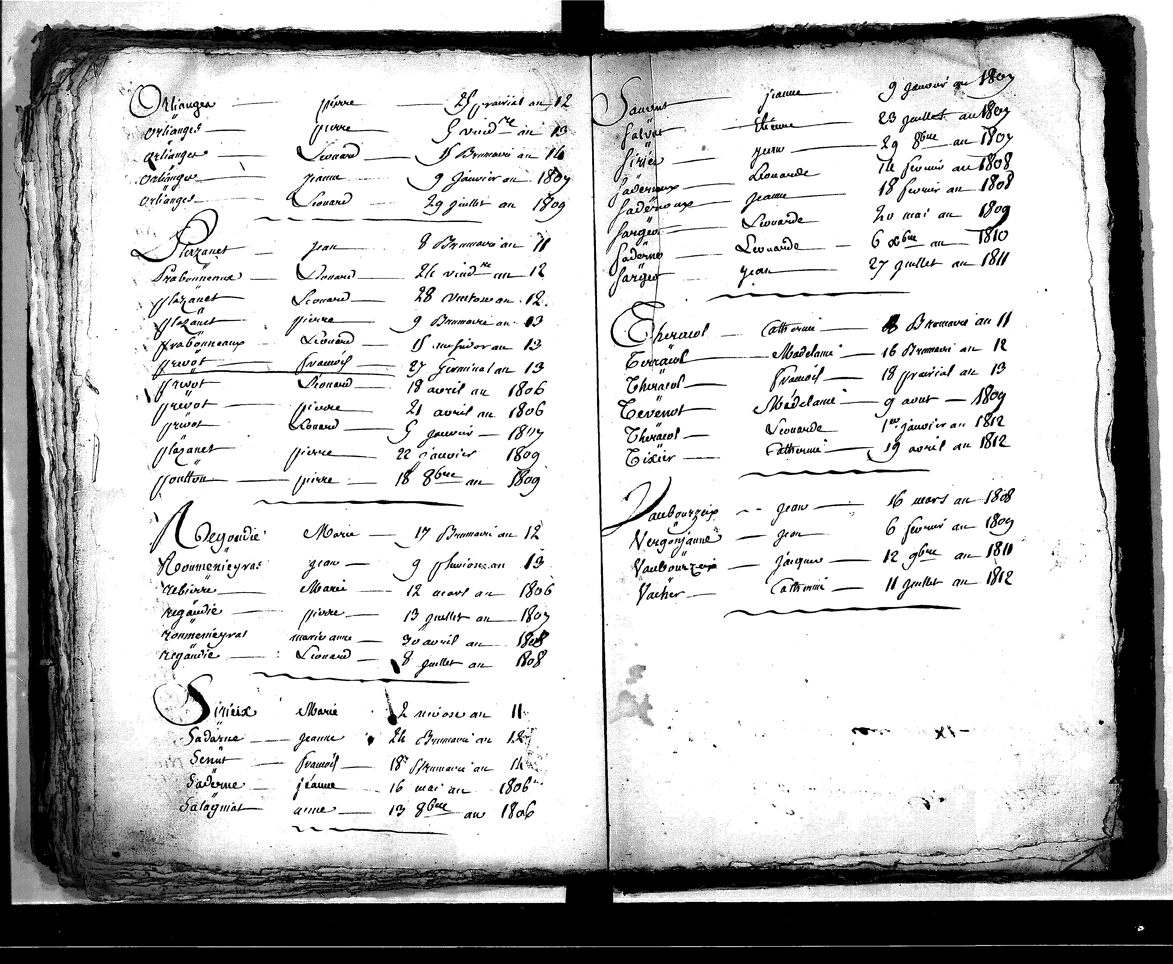 Orlianges pierre 25 prairial an 12
orlianges pierre 5 vind.re an 13
orlianges Léonard 15 Brumaire an 14
orlianges jeanne 9 janvier an 1807
orlianges Léonard 29 juillet an 1809
Plazanet jean 8 Brumaire an 11
Prabonneaux Léonard 24 vind.re an 12
plazanet Léonard 28 ventose an 12
plazanet pierre 9 Brumaire an 13
prabonneaux Léonard 15 messidor an 13
prevot françois 27 Germinal an 13
prevot Léonard 18 avril an 1806
prevot pierre 21 avril an 1806
prevot Léonard 5 janvier 1807
plazanet pierre 22 janvier 1809
poutton pierre 18 8bre an 1809
Regondie Marie 17 Brumaire an 12
Roumenieyras jean 9 pluviose an 13
rebierre Marie 12 mars an 1806
regaudie pierre 13 juillet an 1807
roumenieyras marie anne 30 avril an 1808
regaudie Léonard 8 juillet an 1808
Sirieix Marie 2 nivose an 11
Sadarne jeanne 24 Brumaire an 12
Senut françois 18 Brumaire an 14
Saderne jeanne 16 mai an 1806
Salagniat anne 13 8bre an 1806
Sauvent jeanne 9 janvier an 1807
Salvat Etienne 23 juillet an 1807
Sirieix jeanne 29 8bre an 1807
Sadernoux Léonarde 14 fevrier an 1808
Sadernoux jeanne 18 fevrier an 1808
Sargeo Léonarde 20 mai an 1809
Saderne Léonarde 6 xbre an 1810
Sarges jean 27 juillet an 1811
Theracol Catherine 8 Bromaire an 11
Terracol Madelaine 16 Brumaire an 12
Theracol françois 18 prairial an 13
Tevenot Madelaine 9 aout 1809
Theracol Léonarde 1er janvier an 1812
Tixier Catherine 19 avril an 1812
Vaubourzeix jean 16 mars an 1808
Vergonjanne jean 6 fevrier an 1809
Vaubourzeix jacques 12 9bre an 1811
Vacher Catherine 11 juillet an 1812